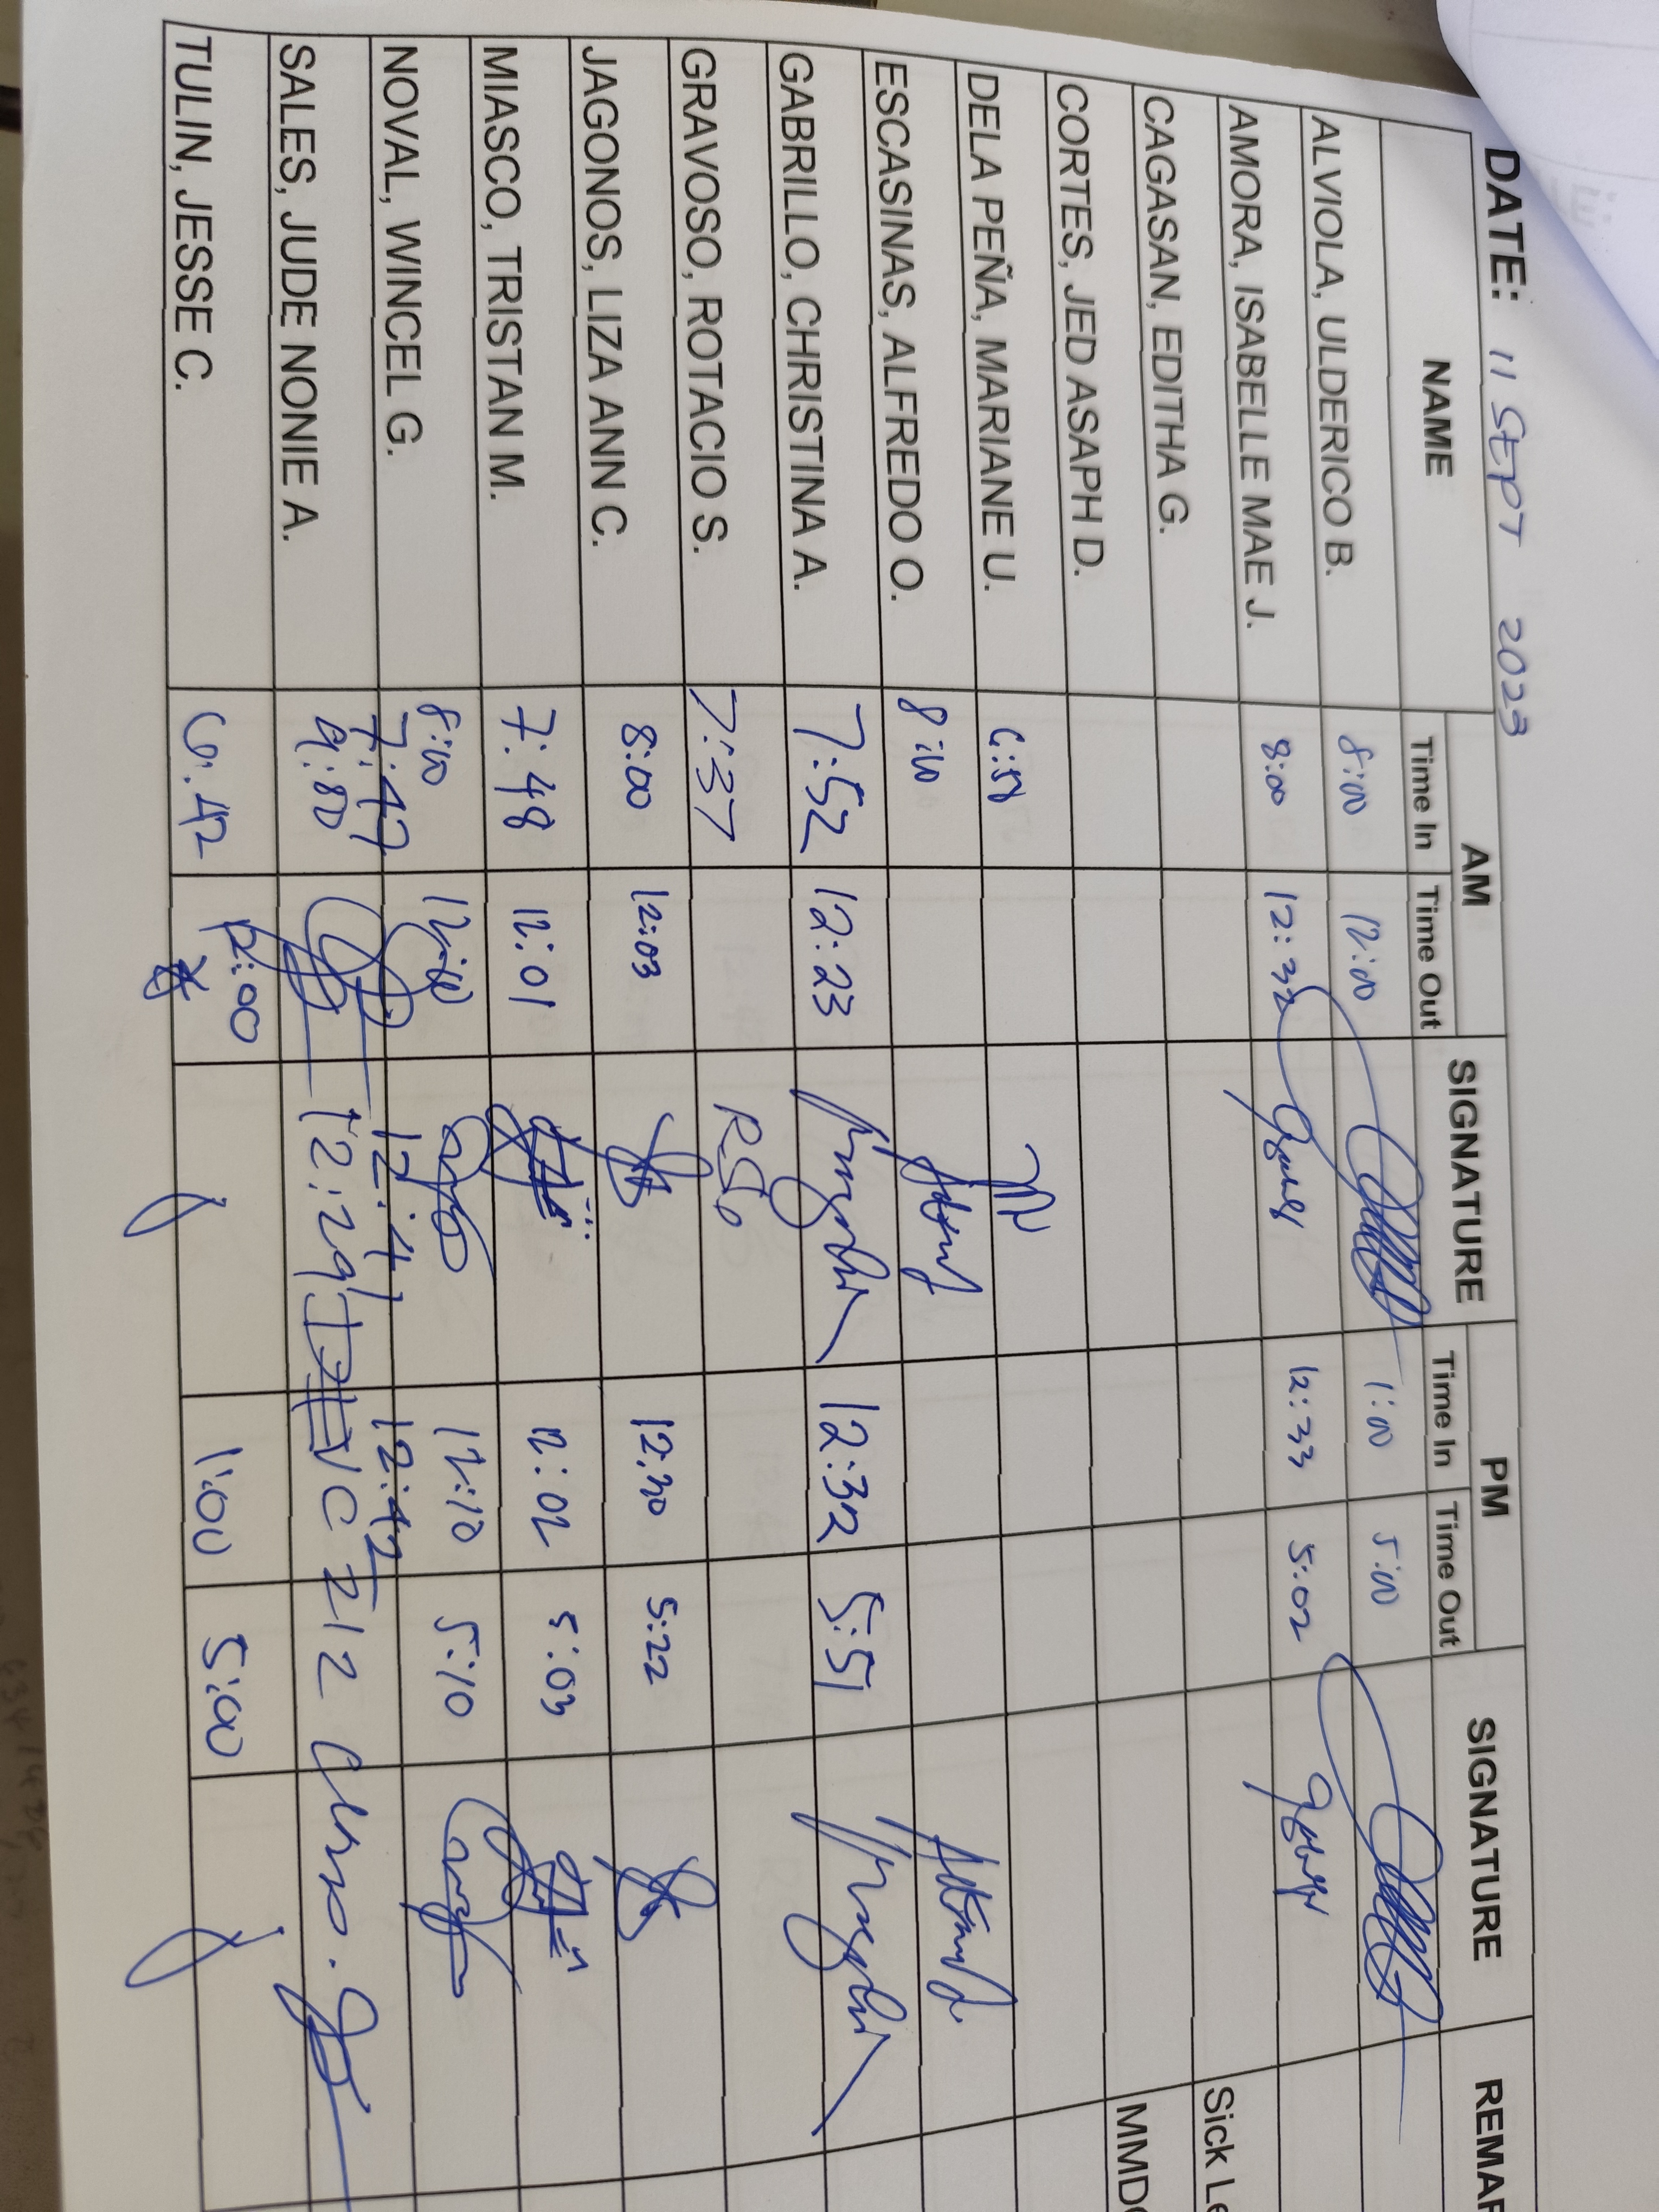 DATE: 11 SEPT 2023
NAME AM SIGNATURE PM SIGNATURE REMAR
Time In Time Out Time In Time Out
ALVIOLA, ULDERICO B. 8:00 12:00 1:00 5:00
AMORA, ISABELLE MAE J. 8:00 12:32 12:33 5:02
CAGASAN, EDITHA G. Sick Le
CORTES, JED ASAPH D. MMDC
DELA PEÑA, MARIANE U.
ESCASINAS, ALFREDO O. 8:10
GABRILLO, CHRISTINA A. 7:52 12:23 12:32 5:51
GRAVOSO, ROTACIO S. 7:37
JAGONOS, LIZA ANN C. 8:00 12:03 12:30 5:22
MIASCO, TRISTAN M. 7:48 12:01 12:02 5:03
NOVAL, WINCEL G. 8:00 12:10 5:10
7:47 12:41 12:42
SALES, JUDE NONIE A. 12:29 212
TULIN, JESSE C. 6:42 12:00 1:00 5:00